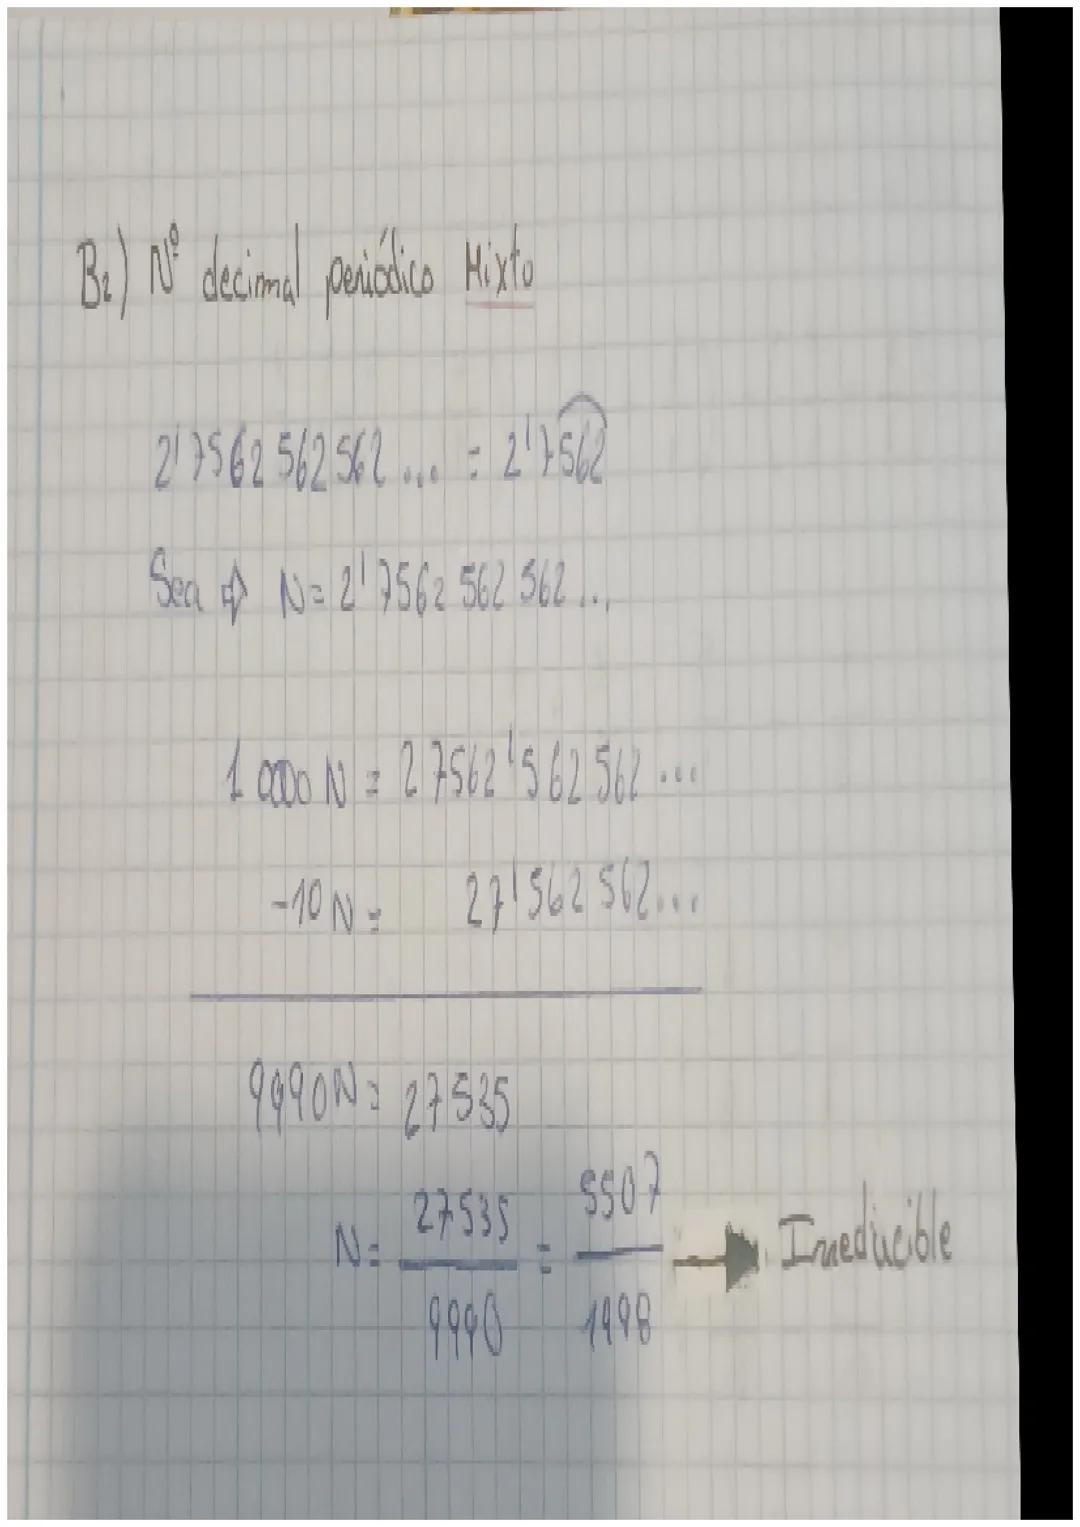 B2) Nº decimal periódico Mixto
2'7562 562 562... = 2'7562
Sea ⇒ N = 2'7562 562 562...
10000 N = 27562'562 562...
-10 N = 27'562 562...
9990N = 27535
N = 27535 / 9990 = 5507 / 1998 → Irreducible